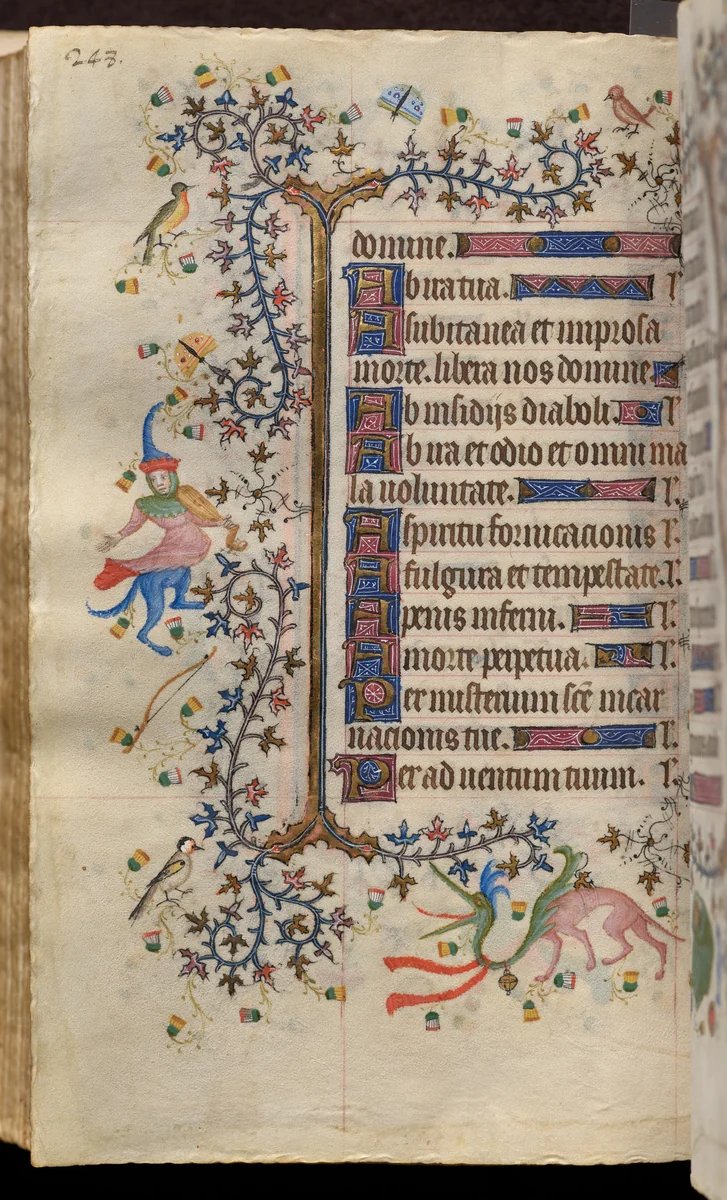 243.
domine.
Ab ira tua. l'.
A subitanea et improsa
morte. libera nos domine
Ab insidijs diaboli. l'
Ab ira et odio et omni ma
la uoluntate. l'.
A spiritu fornicacionis l'.
A fulgura et tempestate. l'.
A penis inferni. l'.
A morte perpetua. l'.
Per misterium sce incar
nacionis tue. l'.
Per ad uentum tuum. l'.